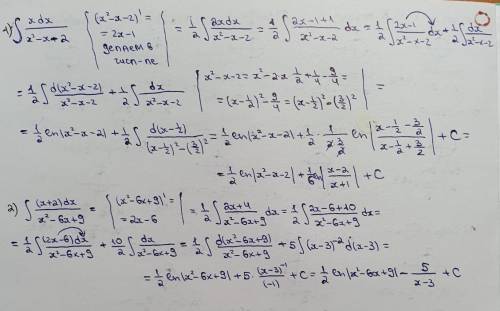 1) ∫ xdx / (x²-x-2) | (x²-x-2)' = = 2x-1 делаем в числ-ле | = 1/2 ∫ 2xdx / (x²-x-2) = 1/2 ∫ (2x-1+1) / (x²-x-2) dx = 1/2 ∫ (2x-1) / (x²-x-2) dx + 1/2 ∫ dx / (x²-x-2) =
= 1/2 ∫ d(x²-x-2) / (x²-x-2) + 1/2 ∫ dx / (x²-x-2) | x²-x-2 = x²-2x·1/2+1/4-9/4 = = (x-1/2)²-9/4 = (x-1/2)²-(3/2)² | =
= 1/2 ln|x²-x-2| + 1/2 ∫ d(x-1/2) / ((x-1/2)²-(3/2)²) = 1/2 ln|x²-x-2| + 1/2 · 1 / (2·3/2) ln| (x-1/2-3/2) / (x-1/2+3/2) | + C =
= 1/2 ln|x²-x-2| + 1/6 ln| (x-2) / (x+1) | + C
2) ∫ (x+2)dx / (x²-6x+9) = | (x²-6x+9)' = = 2x-6 | = 1/2 ∫ (2x+4) / (x²-6x+9) dx = 1/2 ∫ (2x-6+10) / (x²-6x+9) dx =
= 1/2 ∫ (2x-6)dx / (x²-6x+9) + 10/2 ∫ dx / (x²-6x+9) = 1/2 ∫ d(x²-6x+9) / (x²-6x+9) + 5 ∫ (x-3)⁻² d(x-3) =
= 1/2 ln|x²-6x+9| + 5 · (x-3)⁻¹ / (-1) + C = 1/2 ln|x²-6x+9| - 5 / (x-3) + C